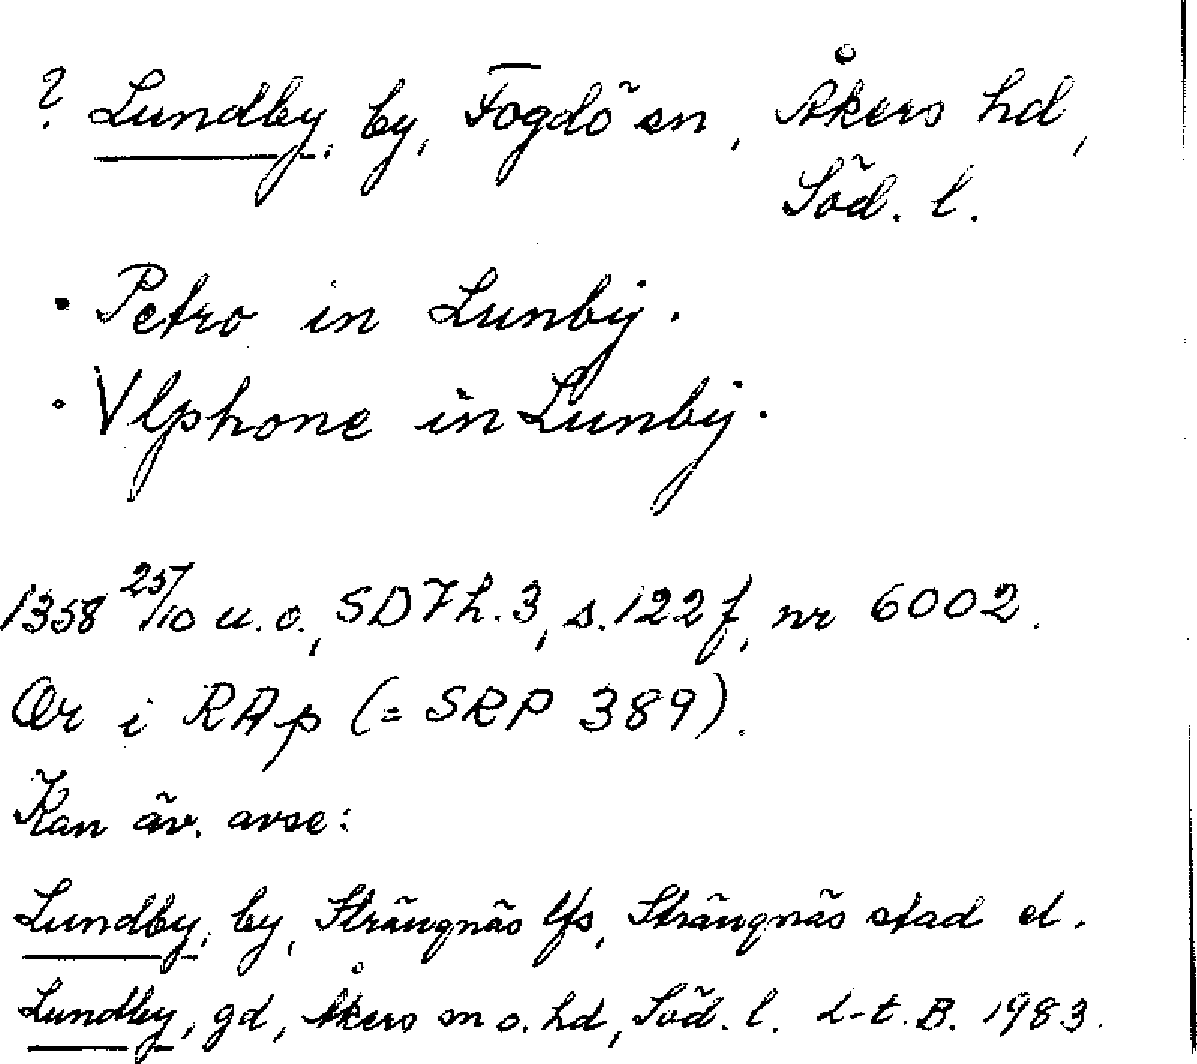 ? Lundby, by, Fogdö sn, Åkers hd,
Söd. l.
· Petro in Lunby.
· Vlphone in Lunby.
1358 25/10 u.o., SD 7 h. 3, s. 122 f, nr 6002.
Or i RAp (= SRP 389).
Kan äv. avse:
Lundby, by, Strängnäs lfs, Strängnäs stad el.
Lundby, gd, Åkers sn o. hd, Söd. l. L-t. B. 1983.